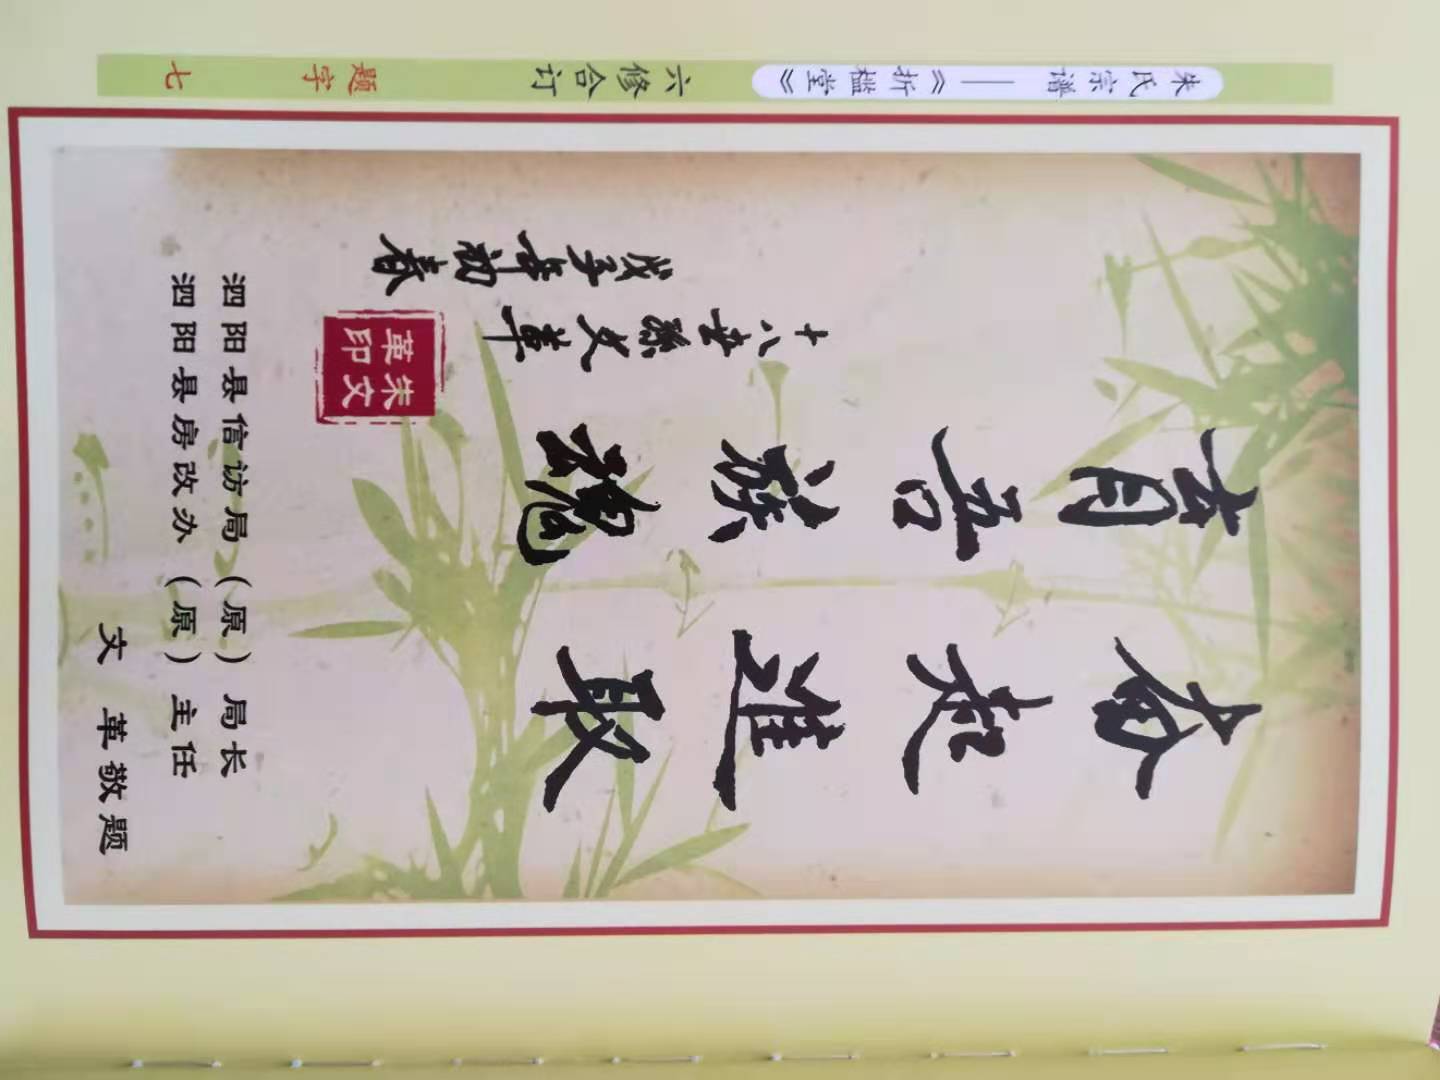 朱氏宗谱——《折槛堂》 六修合订 题字 七
奋起進取
育吾族魂
十八世孫文革
戊子年初春
朱文革印
泗阳县信访局（原）局长
泗阳县房改办（原）主任
文 革敬题